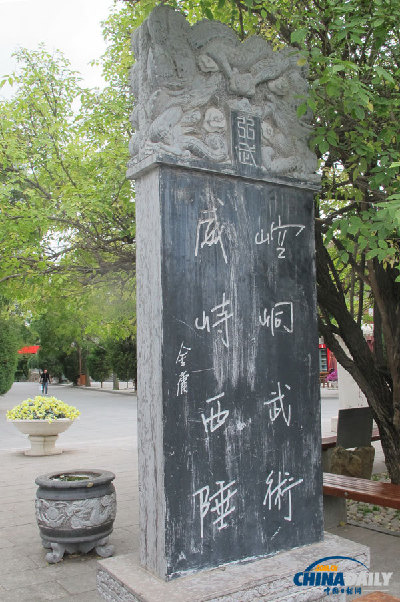 武
崆峒武術
威峙西陲
金庸
CHINADAILY
中国日报网